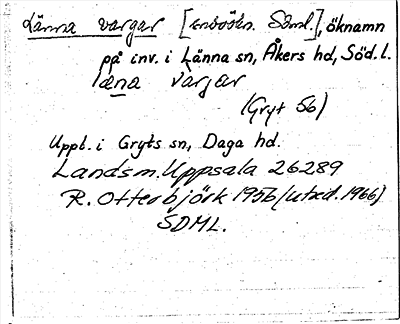 Länna vargar [inbösbn. Söml.], öknamn
på inv. i Länna sn, Åkers hd, Söd. l.
læna vargar
(Gryt 56)
Uppt. i Gryts sn, Daga hd.
Landsm. Uppsala 26289
R. Otterbjörk 1956 (utxd. 1966)
SDML.